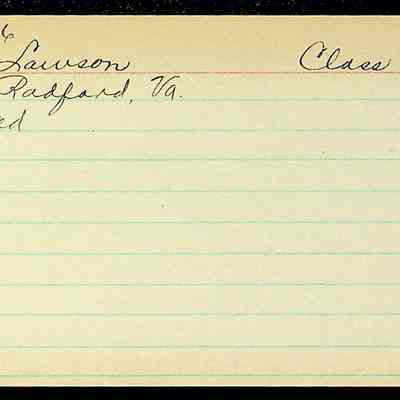 Lawson Class
Radford, Va.
ed